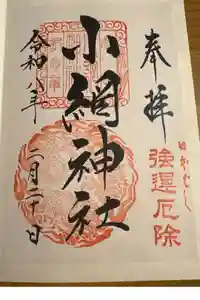 奉拝
強運厄除
小網神社
令和八年
二月二十日